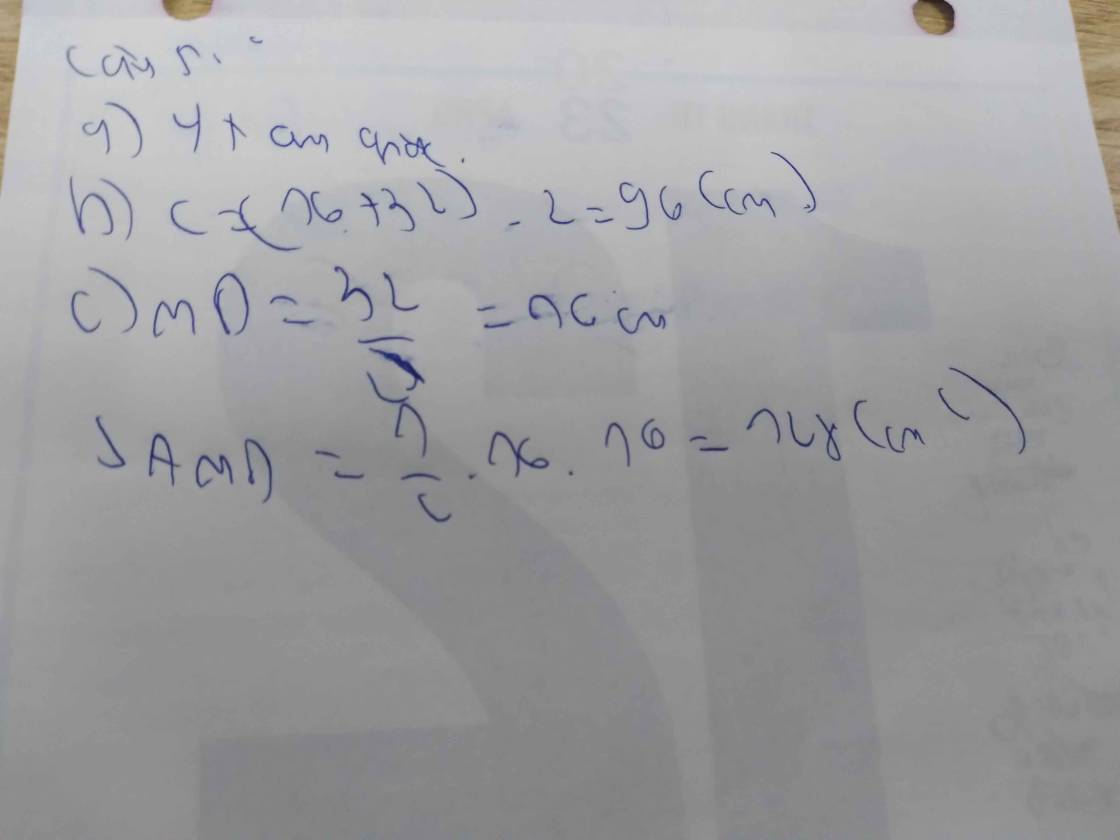 Câu 5.
a) 4
b) C = (16 + 32) . 2 = 96 (cm)
c) MD = 32/2 = 16 cm
SAMD = 1/2 . 16 . 16 = 128 (cm²)